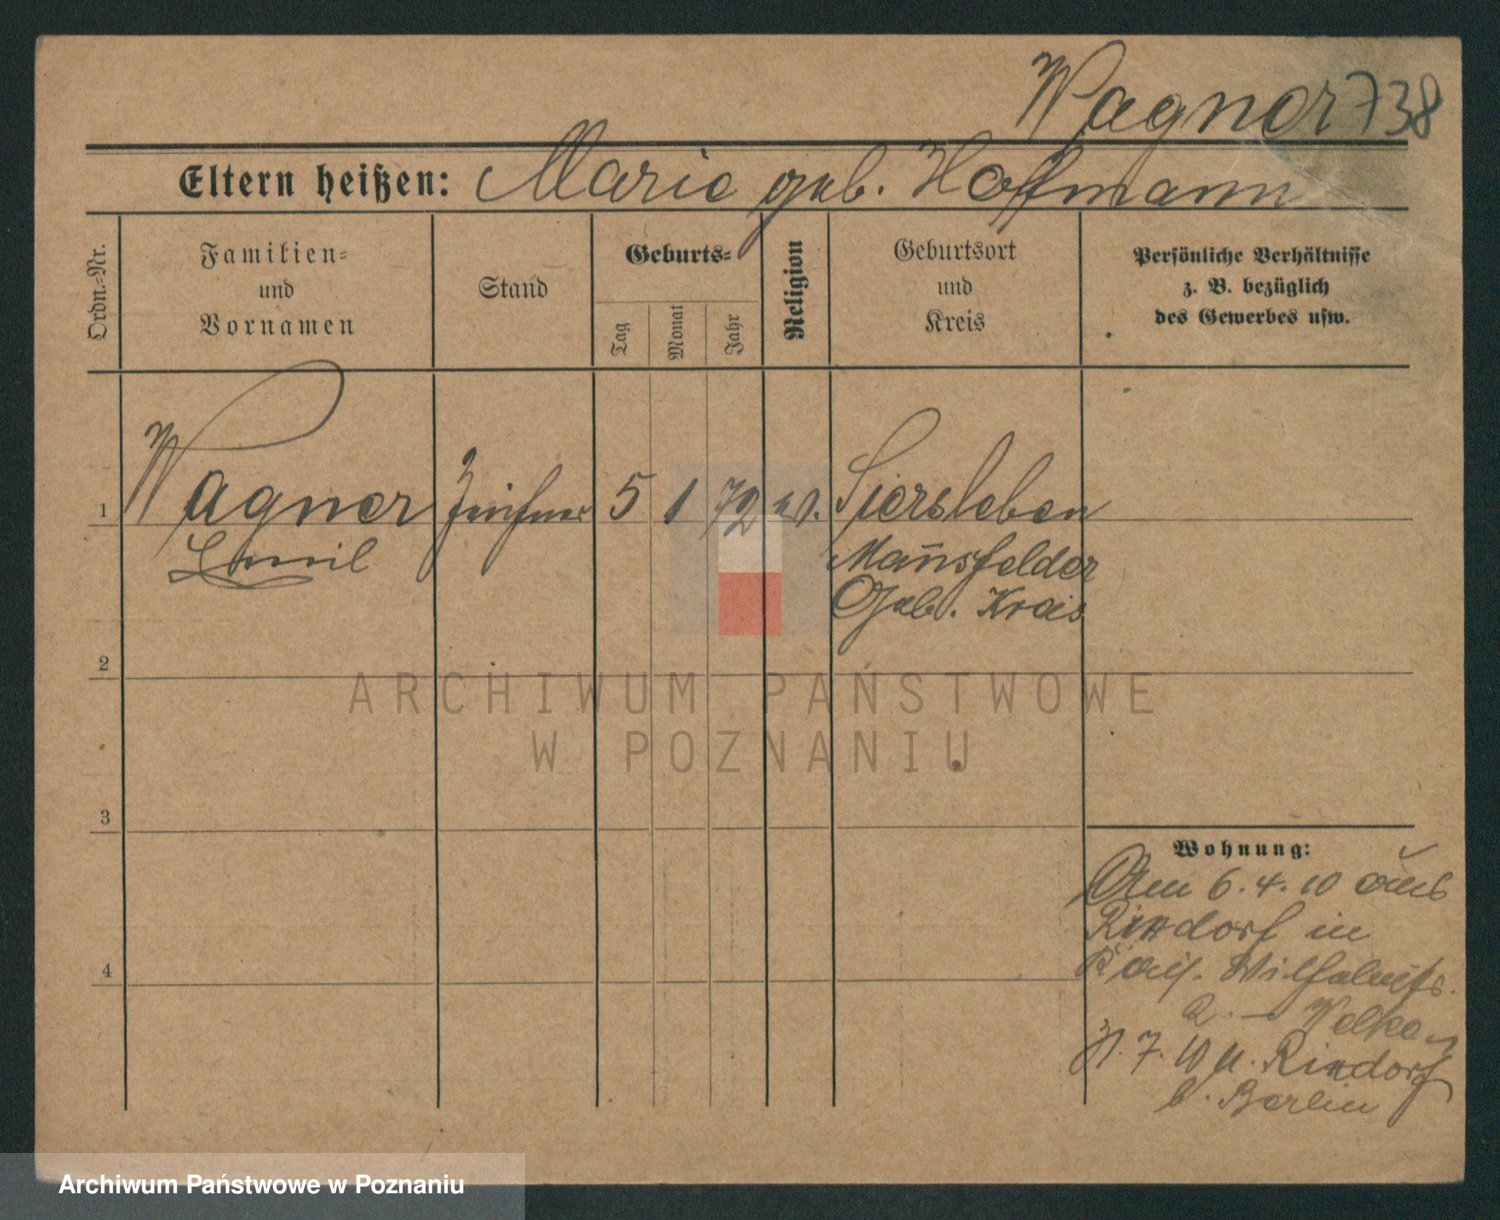 Wagner 738
Eltern heißen: Marie geb. Hoffmann
Ordn.-Nr.
Familien- und Vornamen
Stand
Geburts-
Tag
Monat
Jahr
Religion
Geburtsort und Kreis
Persönliche Verhältnisse
z. B. bezüglich
des Gewerbes usw.
1 Wagner Zeichner 5 1 72 ev. Siersleben
Emil Mansfelder
Geb. Kreis
2
3
4
Wohnung:
Am 6.4.10 aus
Rixdorf in
Wilhelmstr.
2. - Volker
7. 10 n. Rixdorf
b. Berlin
ARCHIWUM PAŃSTWOWE
W POZNANIU
Archiwum Państwowe w Poznaniu